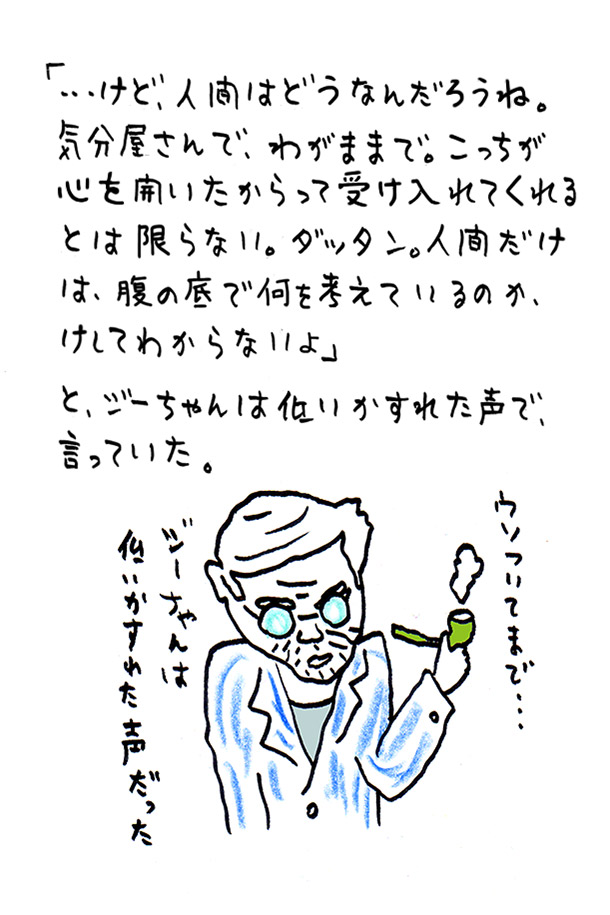 「…けど、人間はどうなんだろうね。
気分屋さんで、わがままで。こっちが
心を開いたからって受け入れてくれる
とは限らない。ダッタン。人間だけ
は、腹の底で何を考えているのか、
けしてわからないよ」
と、ジーちゃんは低いかすれた声で、
言っていた。
ウソついてまで…
ジーちゃんは
低いかすれた声だった